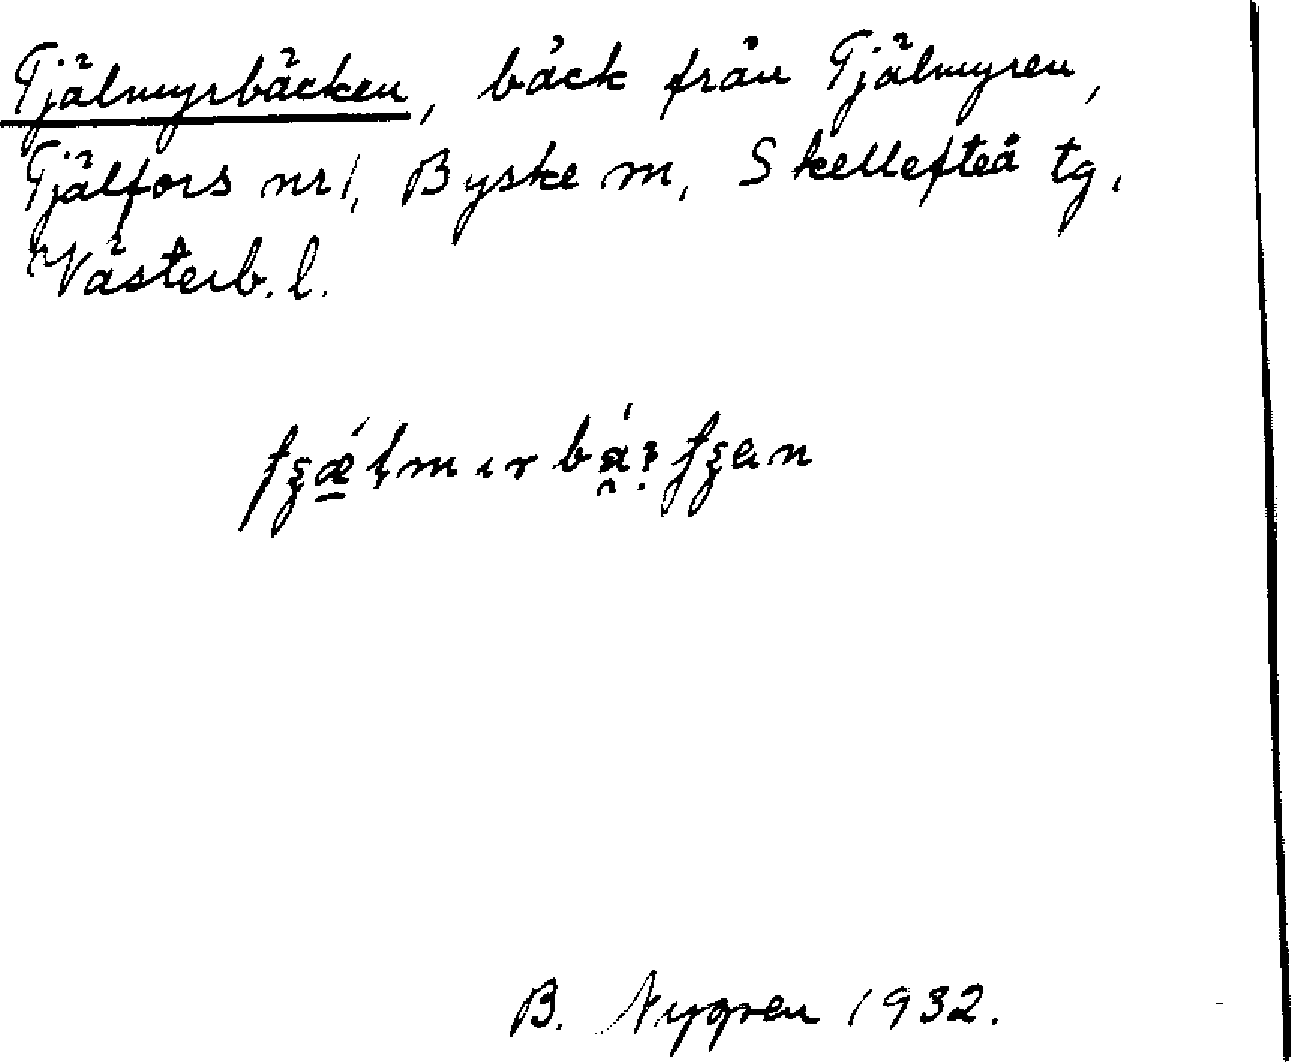 Tjälmyrbäcken, bäck från Tjälmyren,
Tjälfors nr 1, Byske sn, Skellefteå tg,
Västerb. l.
B. Nygren 1932.